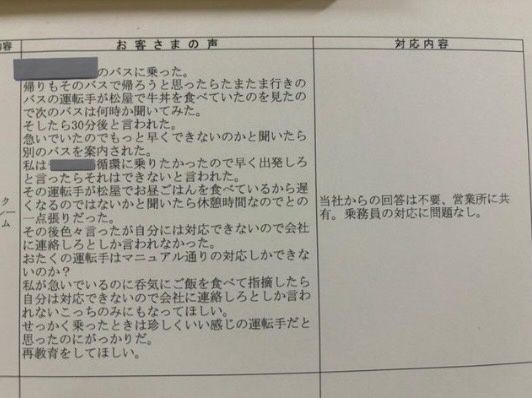 内容 お客さまの声 対応内容
のバスに乗った。
帰りもそのバスで帰ろうと思ったらたまたま行きの
バスの運転手が松屋で牛丼を食べていたのを見たの
で次のバスは何時か聞いてみた。
そしたら30分後と言われた。
急いでいたのでもっと早くできないのかと聞いたら
別のバスを案内された。
私は循環に乗りたかったので早く出発しろ
と言ったらそれはできないと言われた。
その運転手が松屋でお昼ごはんを食べているから遅
くなるのではないかと聞いたら休憩時間なのでとの
一点張りだった。
その後色々言ったが自分には対応できないので会社
に連絡しろとしか言われなかった。
おたくの運転手はマニュアル通りの対応しかできな
いのか？
私が急いでいるのに呑気にご飯を食べて指摘したら
自分は対応できないので会社に連絡しろとしか言わ
れないこっちのみにもなってほしい。
せっかく乗ったときは珍しくいい感じの運転手だと
思ったのにがっかりだ。
再教育をしてほしい。
クレーム
当社からの回答は不要、営業所に共
有。乗務員の対応に問題なし。